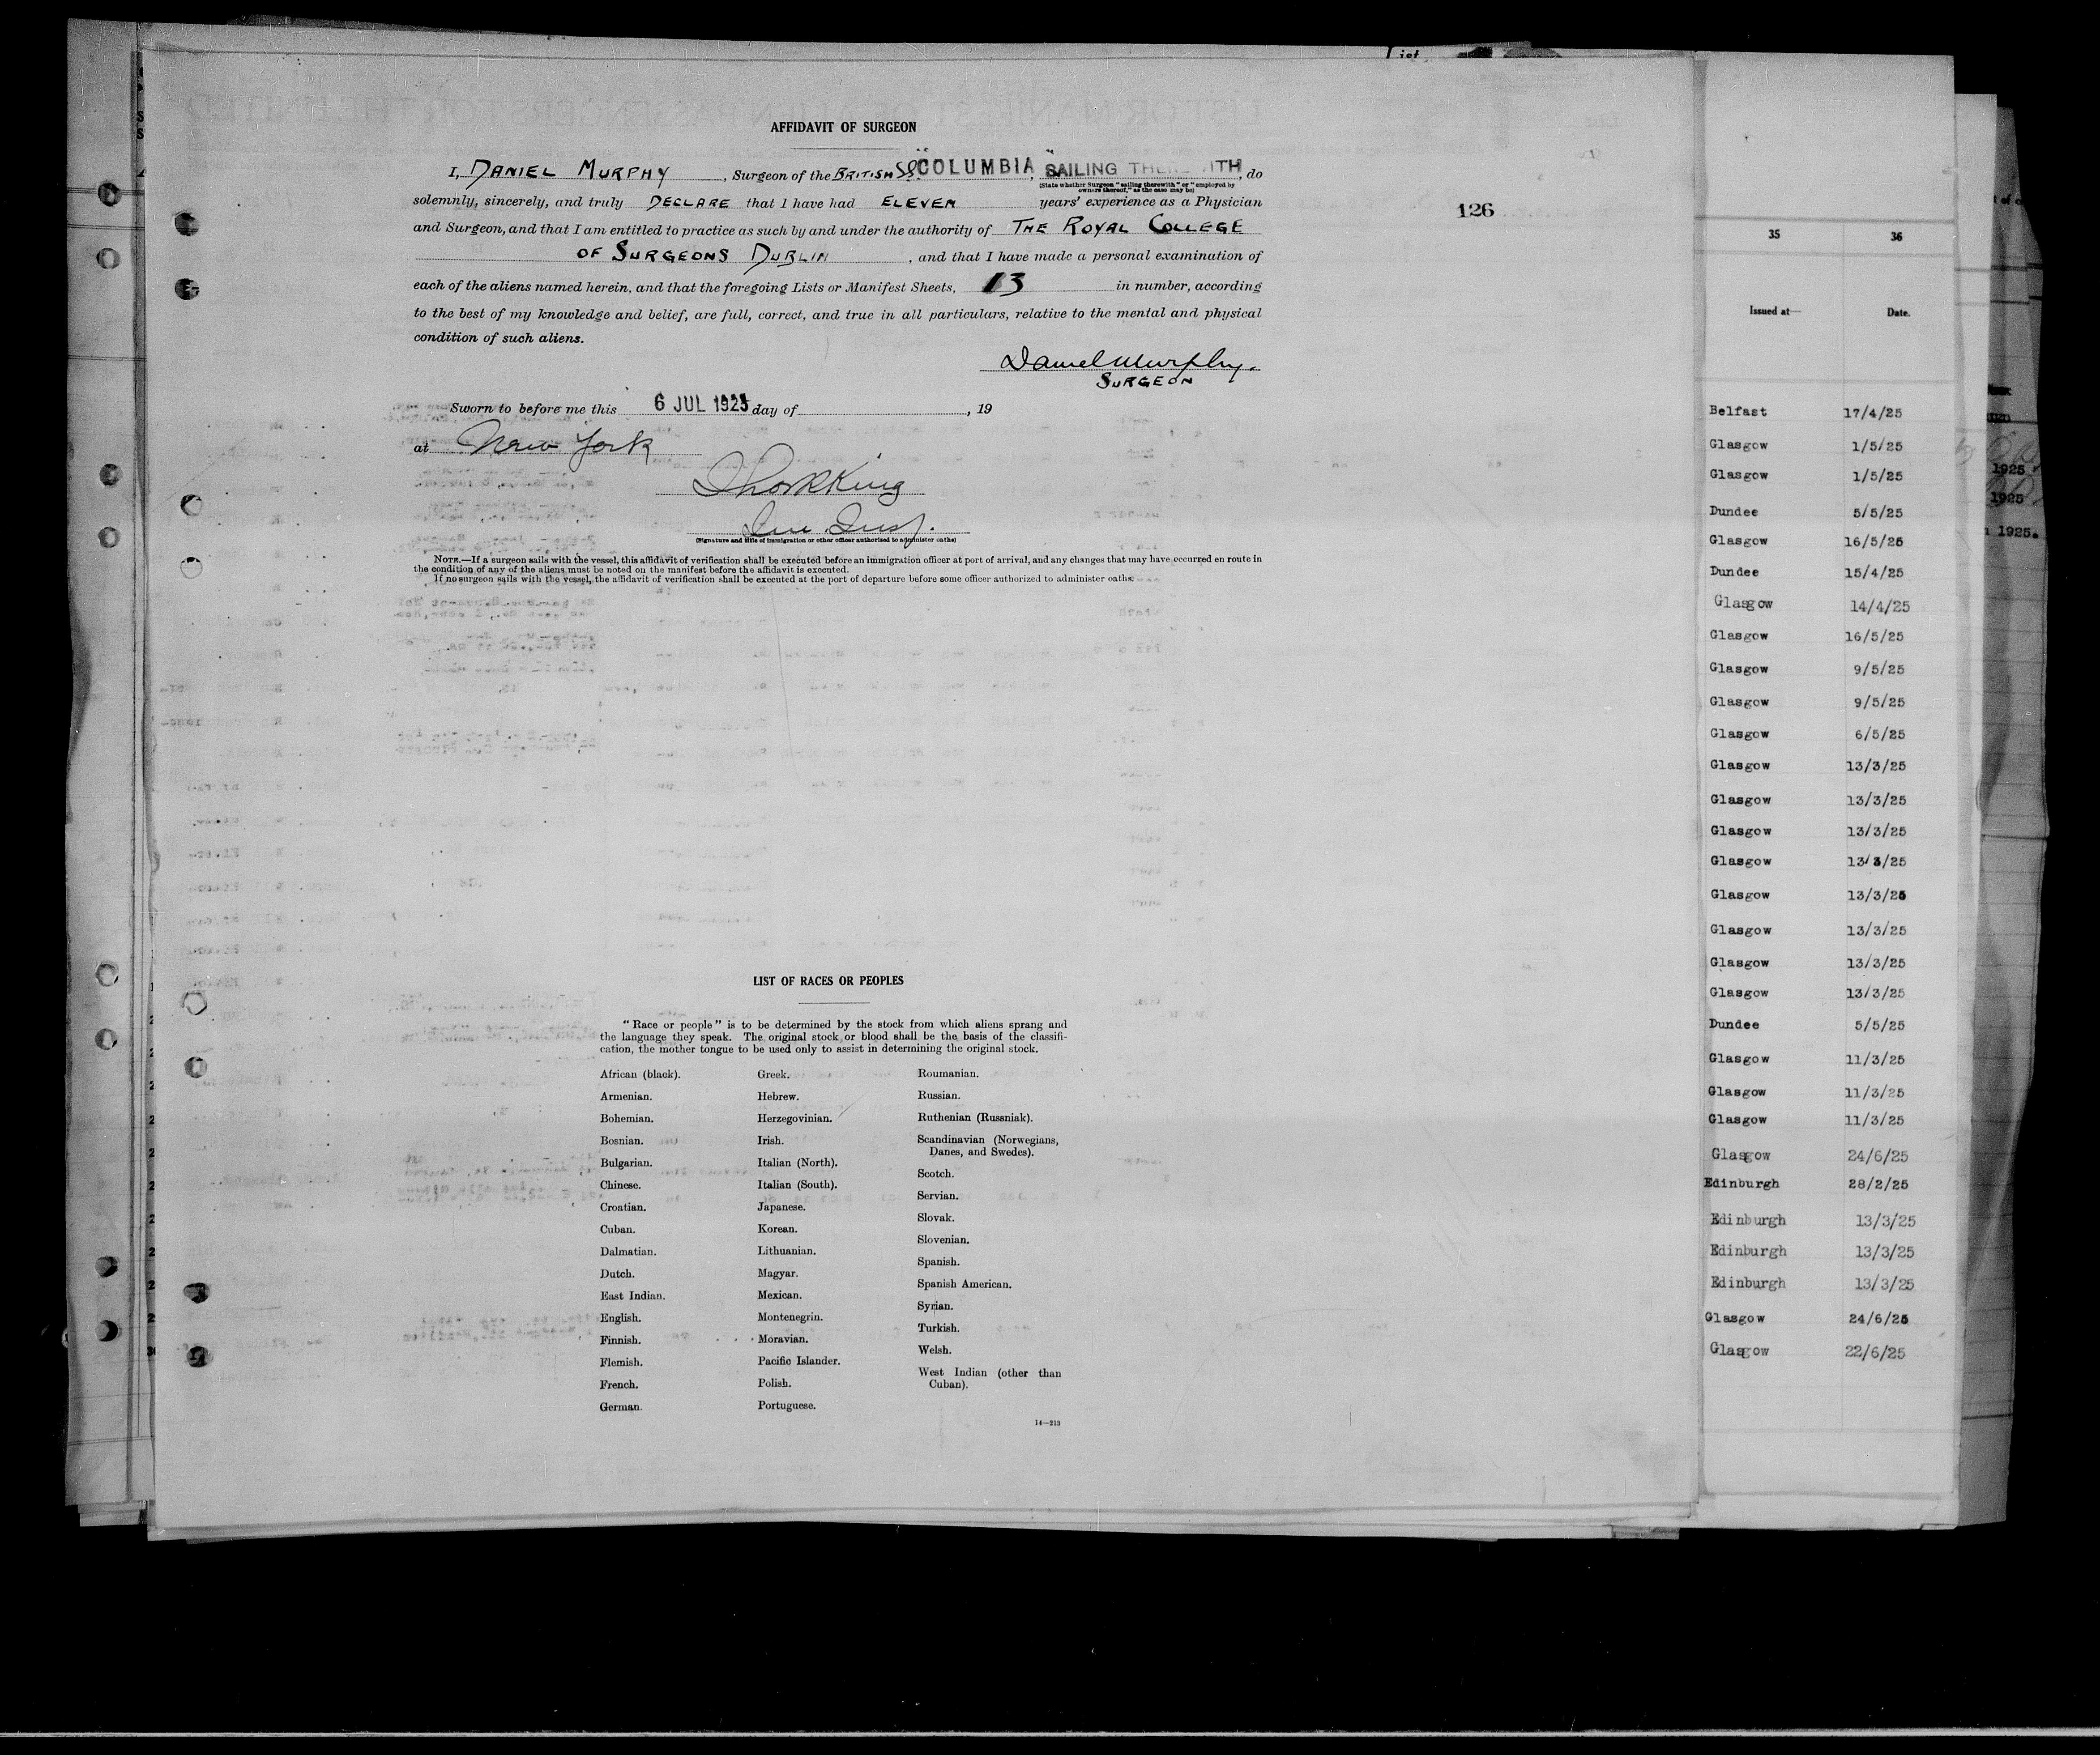 List
AFFIDAVIT OF SURGEON
I, DANIEL MURPHY, Surgeon of the BRITISH SS. "COLUMBIA", SAILING THEREWITH, do
(State whether Surgeon "sailing therewith" or "employed by
owners thereof," as the case may be)
solemnly, sincerely, and truly DECLARE that I have had ELEVEN years' experience as a Physician
and Surgeon, and that I am entitled to practice as such by and under the authority of THE ROYAL COLLEGE
OF SURGEONS DUBLIN, and that I have made a personal examination of
each of the aliens named herein, and that the foregoing Lists or Manifest Sheets, 13 in number, according
to the best of my knowledge and belief, are full, correct, and true in all particulars, relative to the mental and physical
condition of such aliens.
Daniel Murphy.
SURGEON
Sworn to before me this 6 JUL 1925 day of , 19
at New York
King
Insp.
(Signature and title of immigration or other officer authorized to administer oaths)
NOTE.—If a surgeon sails with the vessel, this affidavit of verification shall be executed before an immigration officer at port of arrival, and any changes that may have occurred en route in
the condition of any of the aliens must be noted on the manifest before the affidavit is executed.
If no surgeon sails with the vessel, the affidavit of verification shall be executed at the port of departure before some officer authorized to administer oaths.
126
LIST OF RACES OR PEOPLES
"Race or people" is to be determined by the stock from which aliens sprang and
the language they speak. The original stock or blood shall be the basis of the classifi-
cation, the mother tongue to be used only to assist in determining the original stock.
African (black).
Armenian.
Bohemian.
Bosnian.
Bulgarian.
Chinese.
Croatian.
Cuban.
Dalmatian.
Dutch.
East Indian.
English.
Finnish.
Flemish.
French.
German.
Greek.
Hebrew.
Herzegovinian.
Irish.
Italian (North).
Italian (South).
Japanese.
Korean.
Lithuanian.
Magyar.
Mexican.
Montenegrin.
Moravian.
Pacific Islander.
Polish.
Portuguese.
Roumanian.
Russian.
Ruthenian (Russniak).
Scandinavian (Norwegians,
Danes, and Swedes).
Scotch.
Servian.
Slovak.
Slovenian.
Spanish.
Spanish American.
Syrian.
Turkish.
Welsh.
West Indian (other than
Cuban).
14—213
35 36
Issued at— Date.
Belfast 17/4/25
Glasgow 1/5/25
Glasgow 1/5/25
Dundee 5/5/25
Glasgow 16/5/25
Dundee 15/4/25
Glasgow 14/4/25
Glasgow 16/5/25
Glasgow 9/5/25
Glasgow 9/5/25
Glasgow 6/5/25
Glasgow 13/3/25
Glasgow 13/3/25
Glasgow 13/3/25
Glasgow 13/3/25
Glasgow 13/3/25
Glasgow 13/3/25
Glasgow 13/3/25
Glasgow 13/3/25
Dundee 5/5/25
Glasgow 11/3/25
Glasgow 11/3/25
Glasgow 11/3/25
Glasgow 24/6/25
Edinburgh 28/2/25
Edinburgh 13/3/25
Edinburgh 13/3/25
Edinburgh 13/3/25
Glasgow 24/6/25
Glasgow 22/6/25
1925
1925
1925.